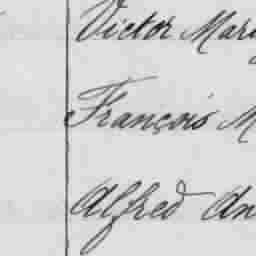 Victor Mari
François M
Alfred An